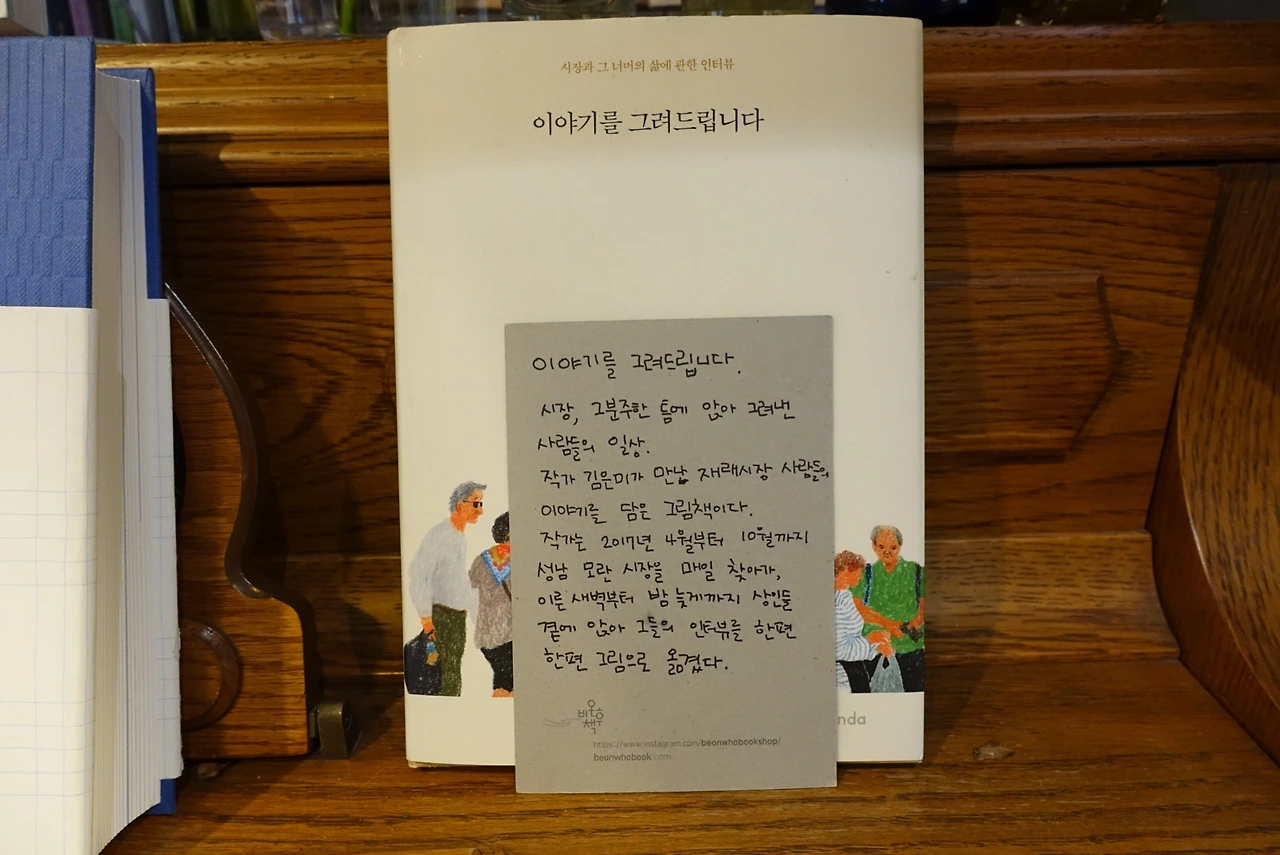 시장과 그 너머의 삶에 관한 인터뷰
이야기를 그려드립니다
이야기를 그려드립니다.
시장, 그분주한 틈에 앉아 그려낸
사람들의 일상.
작가 김은미가 만난 재래시장 사람들의
이야기를 담은 그림책이다.
작가는 2017년 4월부터 10월까지
성남 모란 시장을 매일 찾아가,
이른 새벽부터 밤 늦게까지 상인들
곁에 앉아 그들의 인터뷰를 한편
한편 그림으로 옮겼다.
비욘후책
https://www.instagram.com/beonwhobookshop/
beonwhobook.com
nda